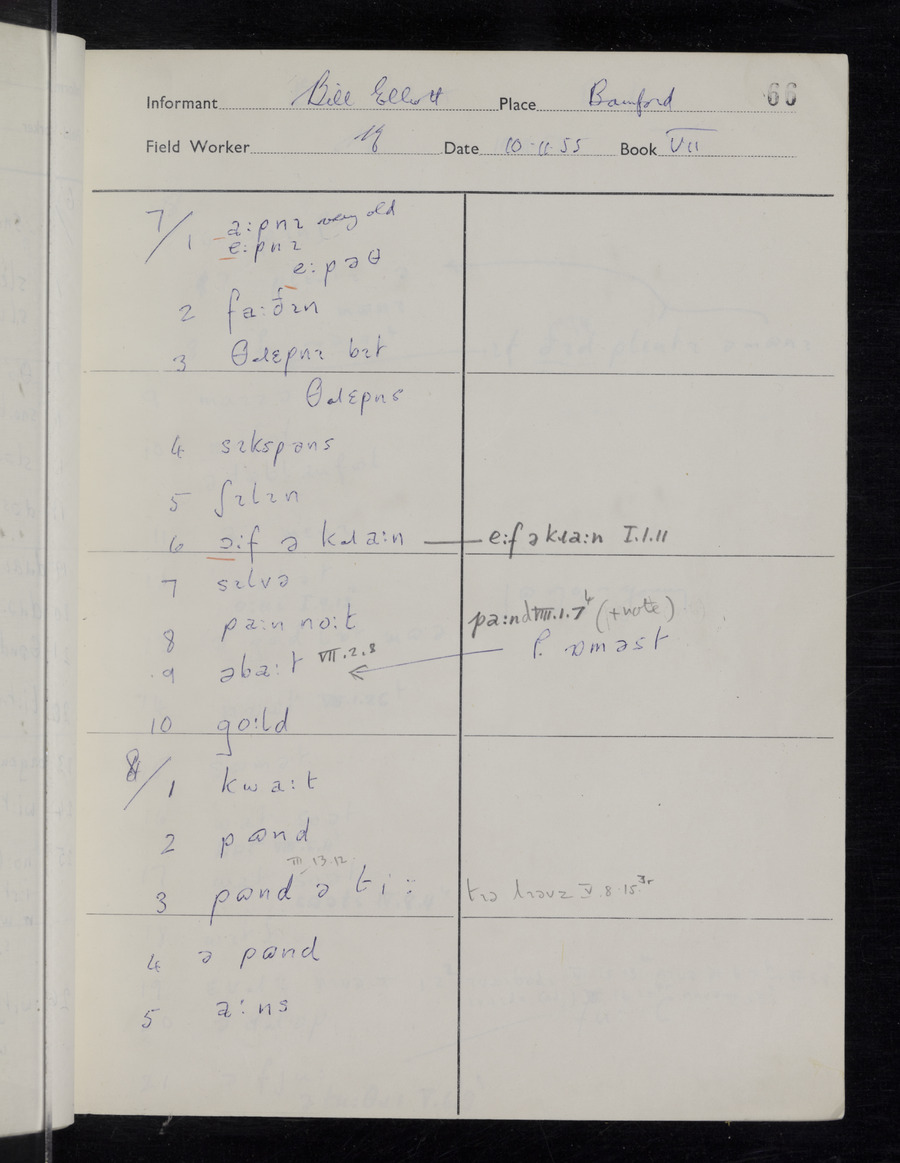 Informant Bill Elliott Place Bamford 66
Field Worker Date 10·11·55 Book VII
7/1 a:pnɪ very old
e:pnɪ
e:pəθ
2 fa:ðɪn
3 θɹɛpnɪ bɪt
θɹɛpns
4 sɪkspəns
5 ʃɪlɪn
6 ə:f ə kɹa:n — e:f ə kɹa:n I.1.11
7 sɪlvə
8 pa:n no:t pa:nd VIII.1.7 (+note)
9 əba:t VII.2.8 P. ɒməst
10 go:ld
8/1 kwa:t
2 pɷnd
III.13.12
3 pɷnd ə ti: V.8.15
4 ə pɷnd
5 a:ns